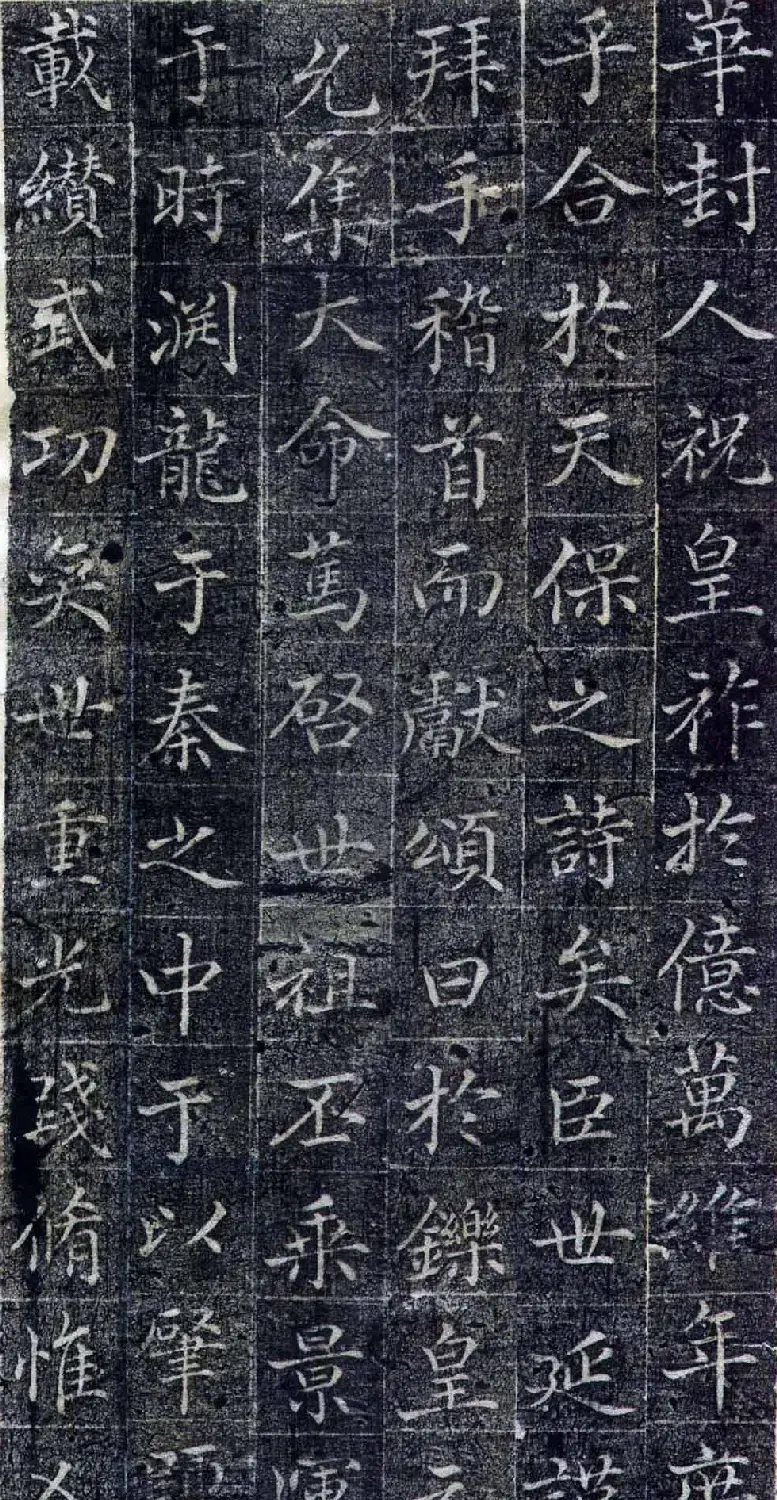 華封人祝皇祚於億萬維年庶
乎合於天保之詩矣臣世延謹
拜手稽首而獻頌曰於鑠皇元
允集大命篤啓世祖丕乘景運
于時淵龍于秦之中于以肇
載纘武功奕世重光踐脩惟